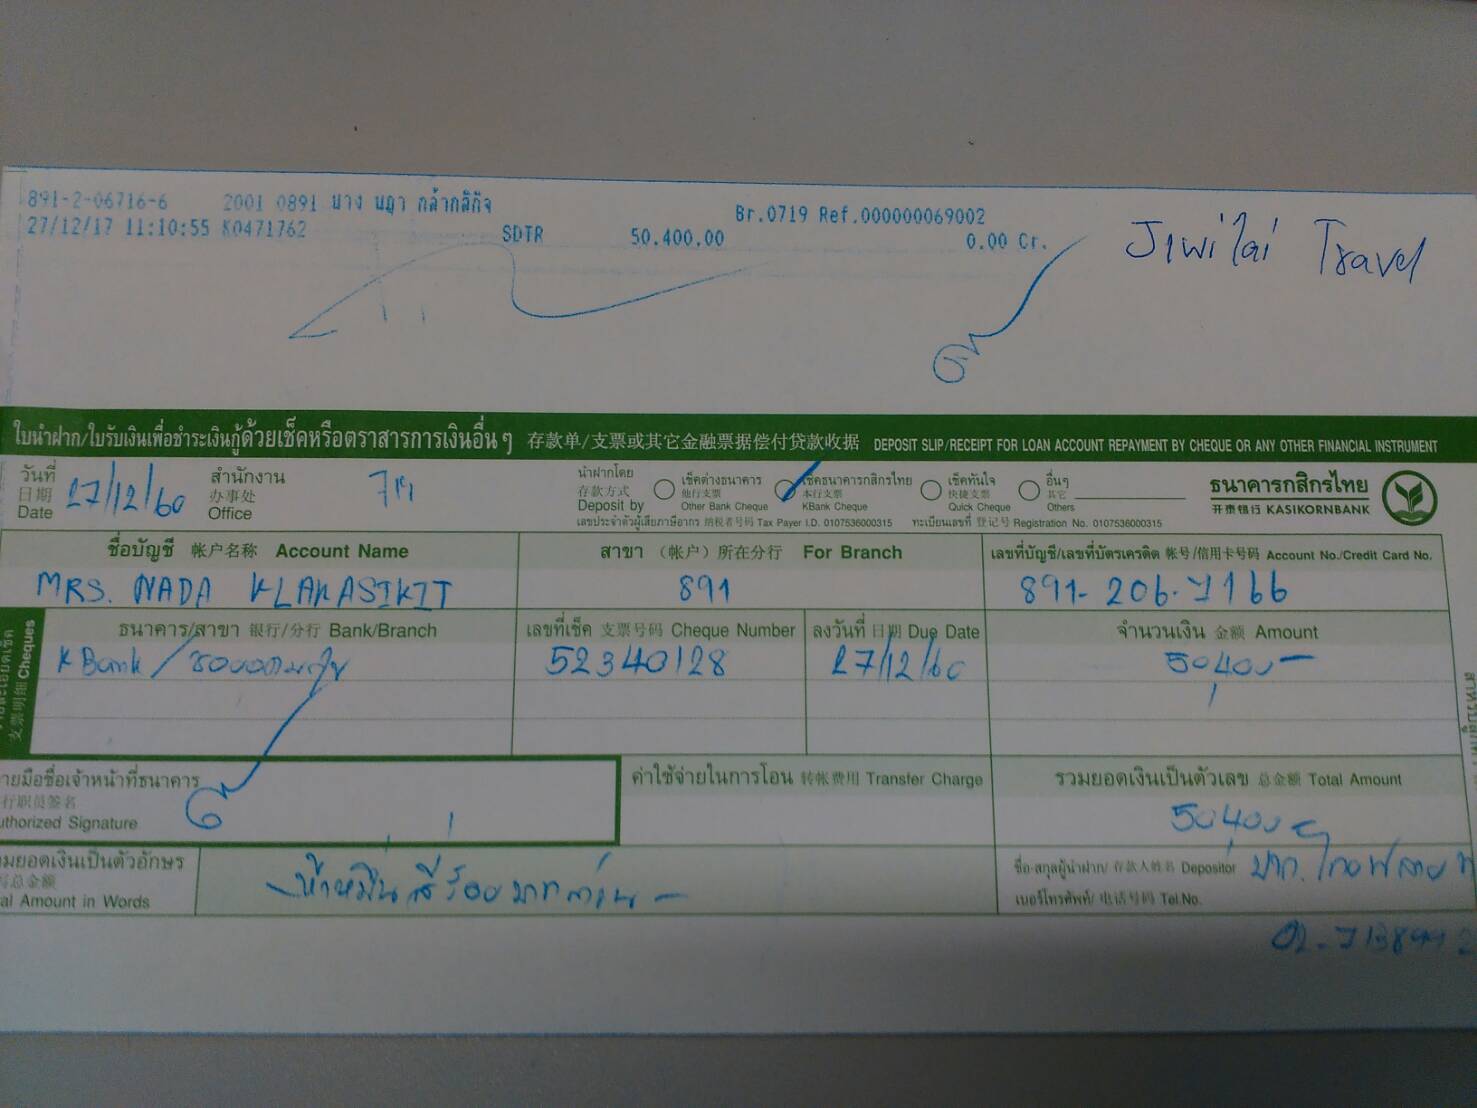 891-2-06716-6 2001 0891 นาง นฎา กล้ากสิกิจ Br.0719 Ref.000000069002
27/12/17 11:10:55 K0471762 SDTR 50,400.00 0.00 Cr.
Travel
ใบนำฝาก/ใบรับเงินเพื่อชำระเงินกู้ด้วยเช็คหรือตราสารการเงินอื่น ๆ 存款单/支票或其它金融票据偿付贷款收据 DEPOSIT SLIP/RECEIPT FOR LOAN ACCOUNT REPAYMENT BY CHEQUE OR ANY OTHER FINANCIAL INSTRUMENT
วันที่ 日期 Date 27/12/60
สำนักงาน 办事处 Office
นำฝากโดย 存款方式 Deposit by
เช็คต่างธนาคาร 他行支票 Other Bank Cheque
เช็คธนาคารกสิกรไทย 本行支票 KBank Cheque
เช็คทันใจ 快捷支票 Quick Cheque
อื่นๆ 其它 Others
ธนาคารกสิกรไทย
开泰银行 KASIKORNBANK
เลขประจำตัวผู้เสียภาษีอากร 纳税者号码 Tax Payer I.D. 0107536000315 ทะเบียนเลขที่ 登记号 Registration No. 0107536000315
ชื่อบัญชี 帐户名称 Account Name สาขา (帐户) 所在分行 For Branch เลขที่บัญชี/เลขที่บัตรเครดิต 帐号/信用卡号码 Account No./Credit Card No.
MRS. NADA KLAKASIKIT 891 891-206-7166
支票明细 Cheques
ธนาคาร/สาขา 银行/分行 Bank/Branch เลขที่เช็ค 支票号码 Cheque Number ลงวันที่ 日期 Due Date จำนวนเงิน 金额 Amount
KBank/ 52340128 27/12/60 50,400-
ายมือชื่อเจ้าหน้าที่ธนาคาร
行职员签名
uthorized Signature
ค่าใช้จ่ายในการโอน 转帐费用 Transfer Charge
รวมยอดเงินเป็นตัวเลข 总金额 Total Amount
50,400-
มยอดเงินเป็นตัวอักษร
总金额
al Amount in Words
ห้าหมื่นสี่ร้อยบาทถ้วน-
ชื่อ-สกุลผู้นำฝาก/ 存款人姓名 Depositor
เบอร์โทรศัพท์/ 电话号码 Tel.No.